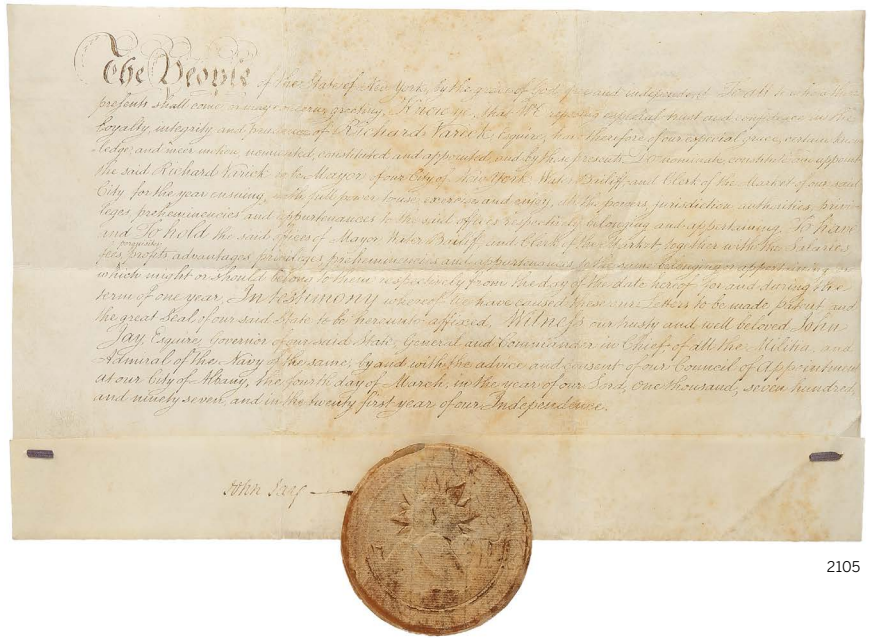 The People of the State of New York, by the grace of God, free and independent To all to whom these
presents shall come, or may concern, greeting, Know ye that We reposing especial trust and confidence in the
Loyalty, integrity and Prudence of Richard Varick Esquire, have therefore of our especial grace, certain know
ledge, and mere motion, nominated, constituted and appointed, and by these presents Do nominate, constitute and appoint
the said Richard Varick to be Mayor of our City of New York Water Bailiff, and Clerk of the Market of our said
City for the year ensuing, with full power to use, exercise and enjoy, all the powers, jurisdiction authorities, privi
leges preheminencies and appurtenances to the said offices respectively belonging and appertaining, To have
and To hold the said offices of Mayor Water Bailiff and Clerk of the Market together with the Salaries
fees, perquisites profits advantages, privileges preheminencies and appurtenances to the same belonging or appertaining
which might or should belong to them respectively from the day of the date hereof for and during the
term of one year, In testimony whereof We have caused these our letters to be made patent and
the great Seal of our said State to be hereunto affixed, Witness our trusty and well beloved John
Jay Esquire, Governor of our said State, General and Commander in Chief, of all the Militia, and
Admiral of the Navy of the same, by and with the advice and consent of our Council of Appointment
at our City of Albany, the fourth day of March, in the year of our Lord, one thousand, seven hundred,
and ninety seven, and in the twenty first year of our Independence.
John Jay
2105